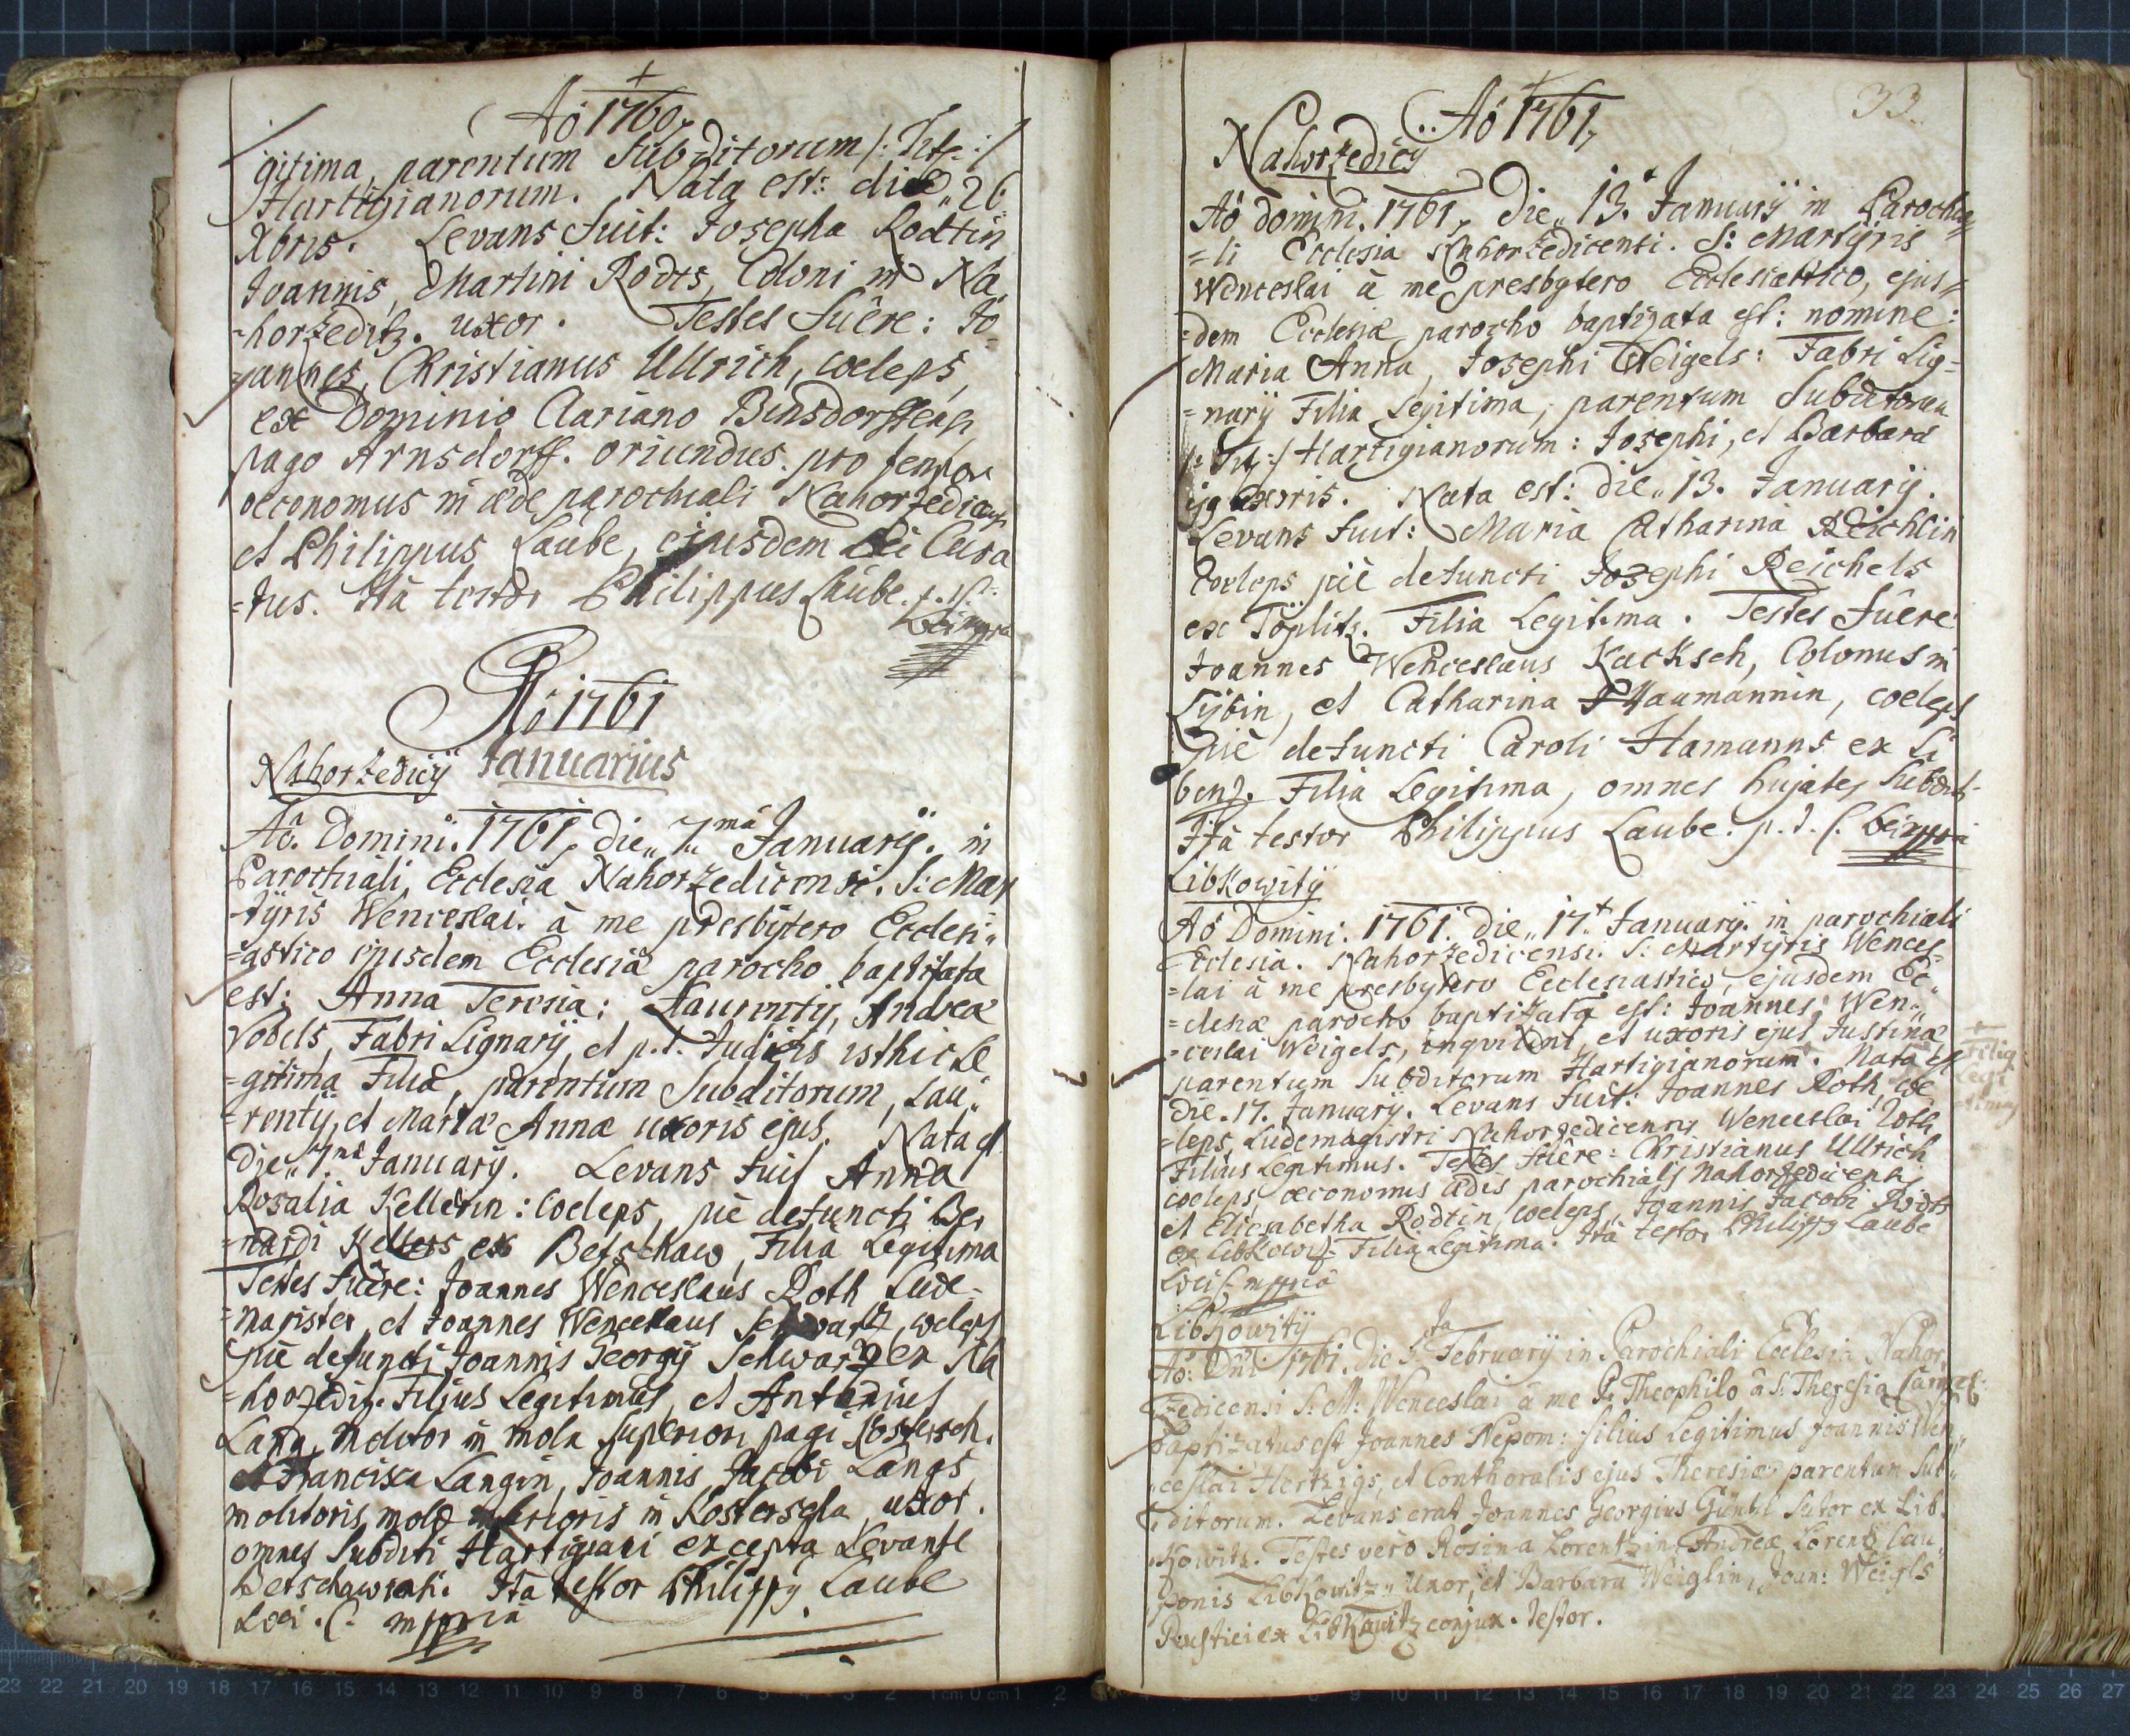 Aõ 1760,
gitima, parentum Subditorum /: Titt: :/
Hartigianorum. Nata est: die„ 26
Xbris. Levans Fuit: Josepha Rodtin
Joannis, Martini Rodts, Coloni in Na
=horzeditz. uxor. Testes Fuêre: Jo
=annes, Christianus Ullrich, coeleps,
ex Dominio Clariano Binsdorffensi,
pago Arnsdorff. oriundus. pro tempor
oeconomus in æde parochiali Nahorzedicensi
et Philippus Laube, ejusdem Loci Cura
=tus. Ità testor Philippus Laube. p. t.
Loci mppria
Aõ 1761
Nahorzedicÿ Januarius
Aô. Domini. 1761, die„ 7mâ Januarÿ. in
Parochiali, Ecclesia Nahorzedicensi. S: Mar
=tÿris Wenceslai. à me presbÿtero Ecclesi„
=astico ejusdem Ecclesiæ parocho baptizata
est: Anna Teresia: Laurentÿ, Andreæ
Vobels, Fabri Lignarÿ, et p. t. Judicis isthic Le
=gitima Filia, parentum Subditorum, Lau„
=rentÿ, et Mariæ Annæ uxoris ejus. Nata est
Die„ 7mâ Januarÿ. Levans Fuit Anna
Rosalia Kellerin: Coeleps, piè defuncti Ber
=nardi Kellers ex Betschaw, Filia Legitima
Testes Fuêre: Joannes Wenceslaus Roth Lude-
=magister, et Joannes Wenceslaus Schwartz, coeleps
piè defuncti Joannis Georgÿ Schwartz ex Na
=horzediz. Filius Legitimus, et Antonius
Lang, Molitor in mola Superiori pagi Kostersch.
et Francisca Langin, Joannis Jacobi Langs
molitoris, molæ inferioris in Kosterschla, uxor.
omnes Subditi Hartigiani excepta Levante
Betschawiensi. Ità testor Philippg Laube
Loci. C. mppria
33.
Aõ 1761,
Nahorzedicÿ
Aõ Domini. 1761, Die„ 13. Januarÿ in Parochia
=li Ecclesia Nahorzedicensi. S: Martÿris
Wenceslai à me presbytero Ecclesiastico, ejus
=dem Ecclesiæ parocho baptizata est: nomine:
Maria Anna, Josephi Weigels: Fabri Lig=
=narÿ Filia Legitima, parentum Subditorum
/: Titt: :/ Hartigianorum: Josephi, et Barbara
ejg uxoris. Nata est: die„ 13. Januarÿ.
Levans Fuit: Maria Catharina Reichlin
Coeleps piè defuncti Josephi Reichels
ex Töplitz. Filia Legitima. Testes Fuêre
Joannes Wenceslaus Kacksch, Colonus in
Lÿbin, et Catharina Haumannin, coeleps
piè defuncti Caroli Hamanns ex Li
benz. Filia Legitima, omnes hujates Subditi-
Ità testor Philippus Laube. p. t. C. Loci mppria
Libkowitÿ
Aõ Domini. 1761. Die„ 17. Januarÿ. in parochiali
Ecclesia. Nahorzedicensi. S: Martyris Wences
=lai à me presbytero Ecclesiastico, ejusdem Ec„
=clesiæ parocho baptizata est: Joannes, Wen„
=ceslai Weigels, inquilini, et uxoris ejus Justinæ
parentum Subditorum Hartigianorum. Nata est
+ Filia
Legi
tima
Die. 17. Januarÿ. Levans Fuit: Joannes Roth, coe
=leps, Ludemagistri Nahorzedicensis Wenceslai Roth
Filius Legitimus. Testes Fuêre: Christianus Ullrich
coeleps oeconomus ædis parochialis Nahorzedicensis
et Elisabetha Rodtin, coeleps, Joannis Jacobi Rodts
ex Libkowitz. Filia Legitima. Ità testor Philippg Laube
Loci C mppria
Libkowitÿ
Aõ: Dni 1761. die 5ta Februarÿ in Parochiali Ecclesia Nahor„
zedicensi S: M: Wenceslai à me P. Theophilo à S. Theresia Carmel:
baptizatus est Joannes Nepom: filius Legitimus Joannis Wen„
ceslai Hertzigs, et Conthoralis ejus Theresiæ, parentum Sub„
ditorum. Levans erat Joannes Georgius Güntzl Sutor ex Lib„
kowitz. Testes verò Rosina Lorentzin, Andreæ Lorentz Cau„
ponis Libkowitz„ Uxor, et Barbara Weiglin, Joan: Weigls
Rustici ex Libkowitz conjux. testor.